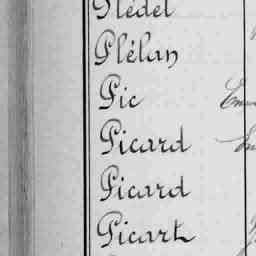 Plédel
Plélan
Pic
Picard
Picard
Picart